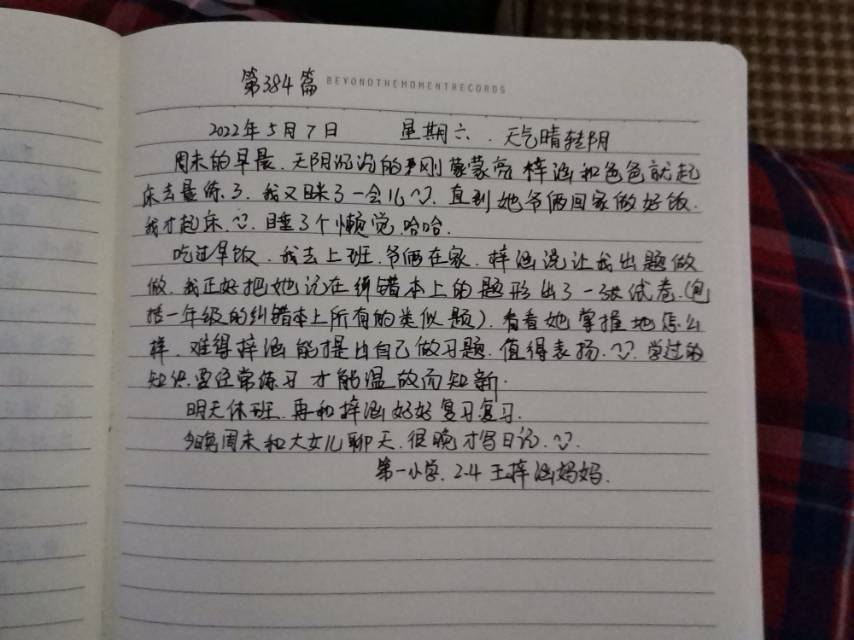 第384篇 BEYONDTHEMOMENTRECORDS
2022年5月7日 星期六.天气晴转阴
周末的早晨.天阴沉沉的刚蒙蒙亮梓涵和爸爸就起
床去晨练了.我又眯了一会儿.直到她爷俩回家做好饭.
我才起床.睡了个懒觉哈哈.
吃过早饭.我去上班.爷俩在家.梓涵说让我出题做
做.我正好把她记在纠错本上的题形出了一张试卷.(包
括一年级的纠错本上所有的类似题).看看她掌握地怎么
样.难得梓涵能提出自己做习题.值得表扬.学过的
知识要经常练习才能温故而知新.
明天休班.再和梓涵好好复习复习.
今晚周末和大女儿聊天.很晚才写日记.
第一小学.2.4王梓涵妈妈.